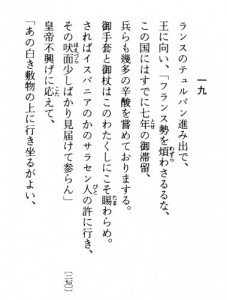 一九
ランスのテュルパン進み出で、
王に向い、「フランス勢を煩わさるるな、
この国にはすでに七年の御滞留、
兵らも幾多の辛酸を嘗めておりまする。
御手套と御杖とはこのわたくしにこそ賜わらめ。
さればイスパニアのかのサラセン人の許に行き、
その吠面少しばかり見届けて参らん」
皇帝不興げに応えて、
「あの白き敷物の上に行き坐るがよい、